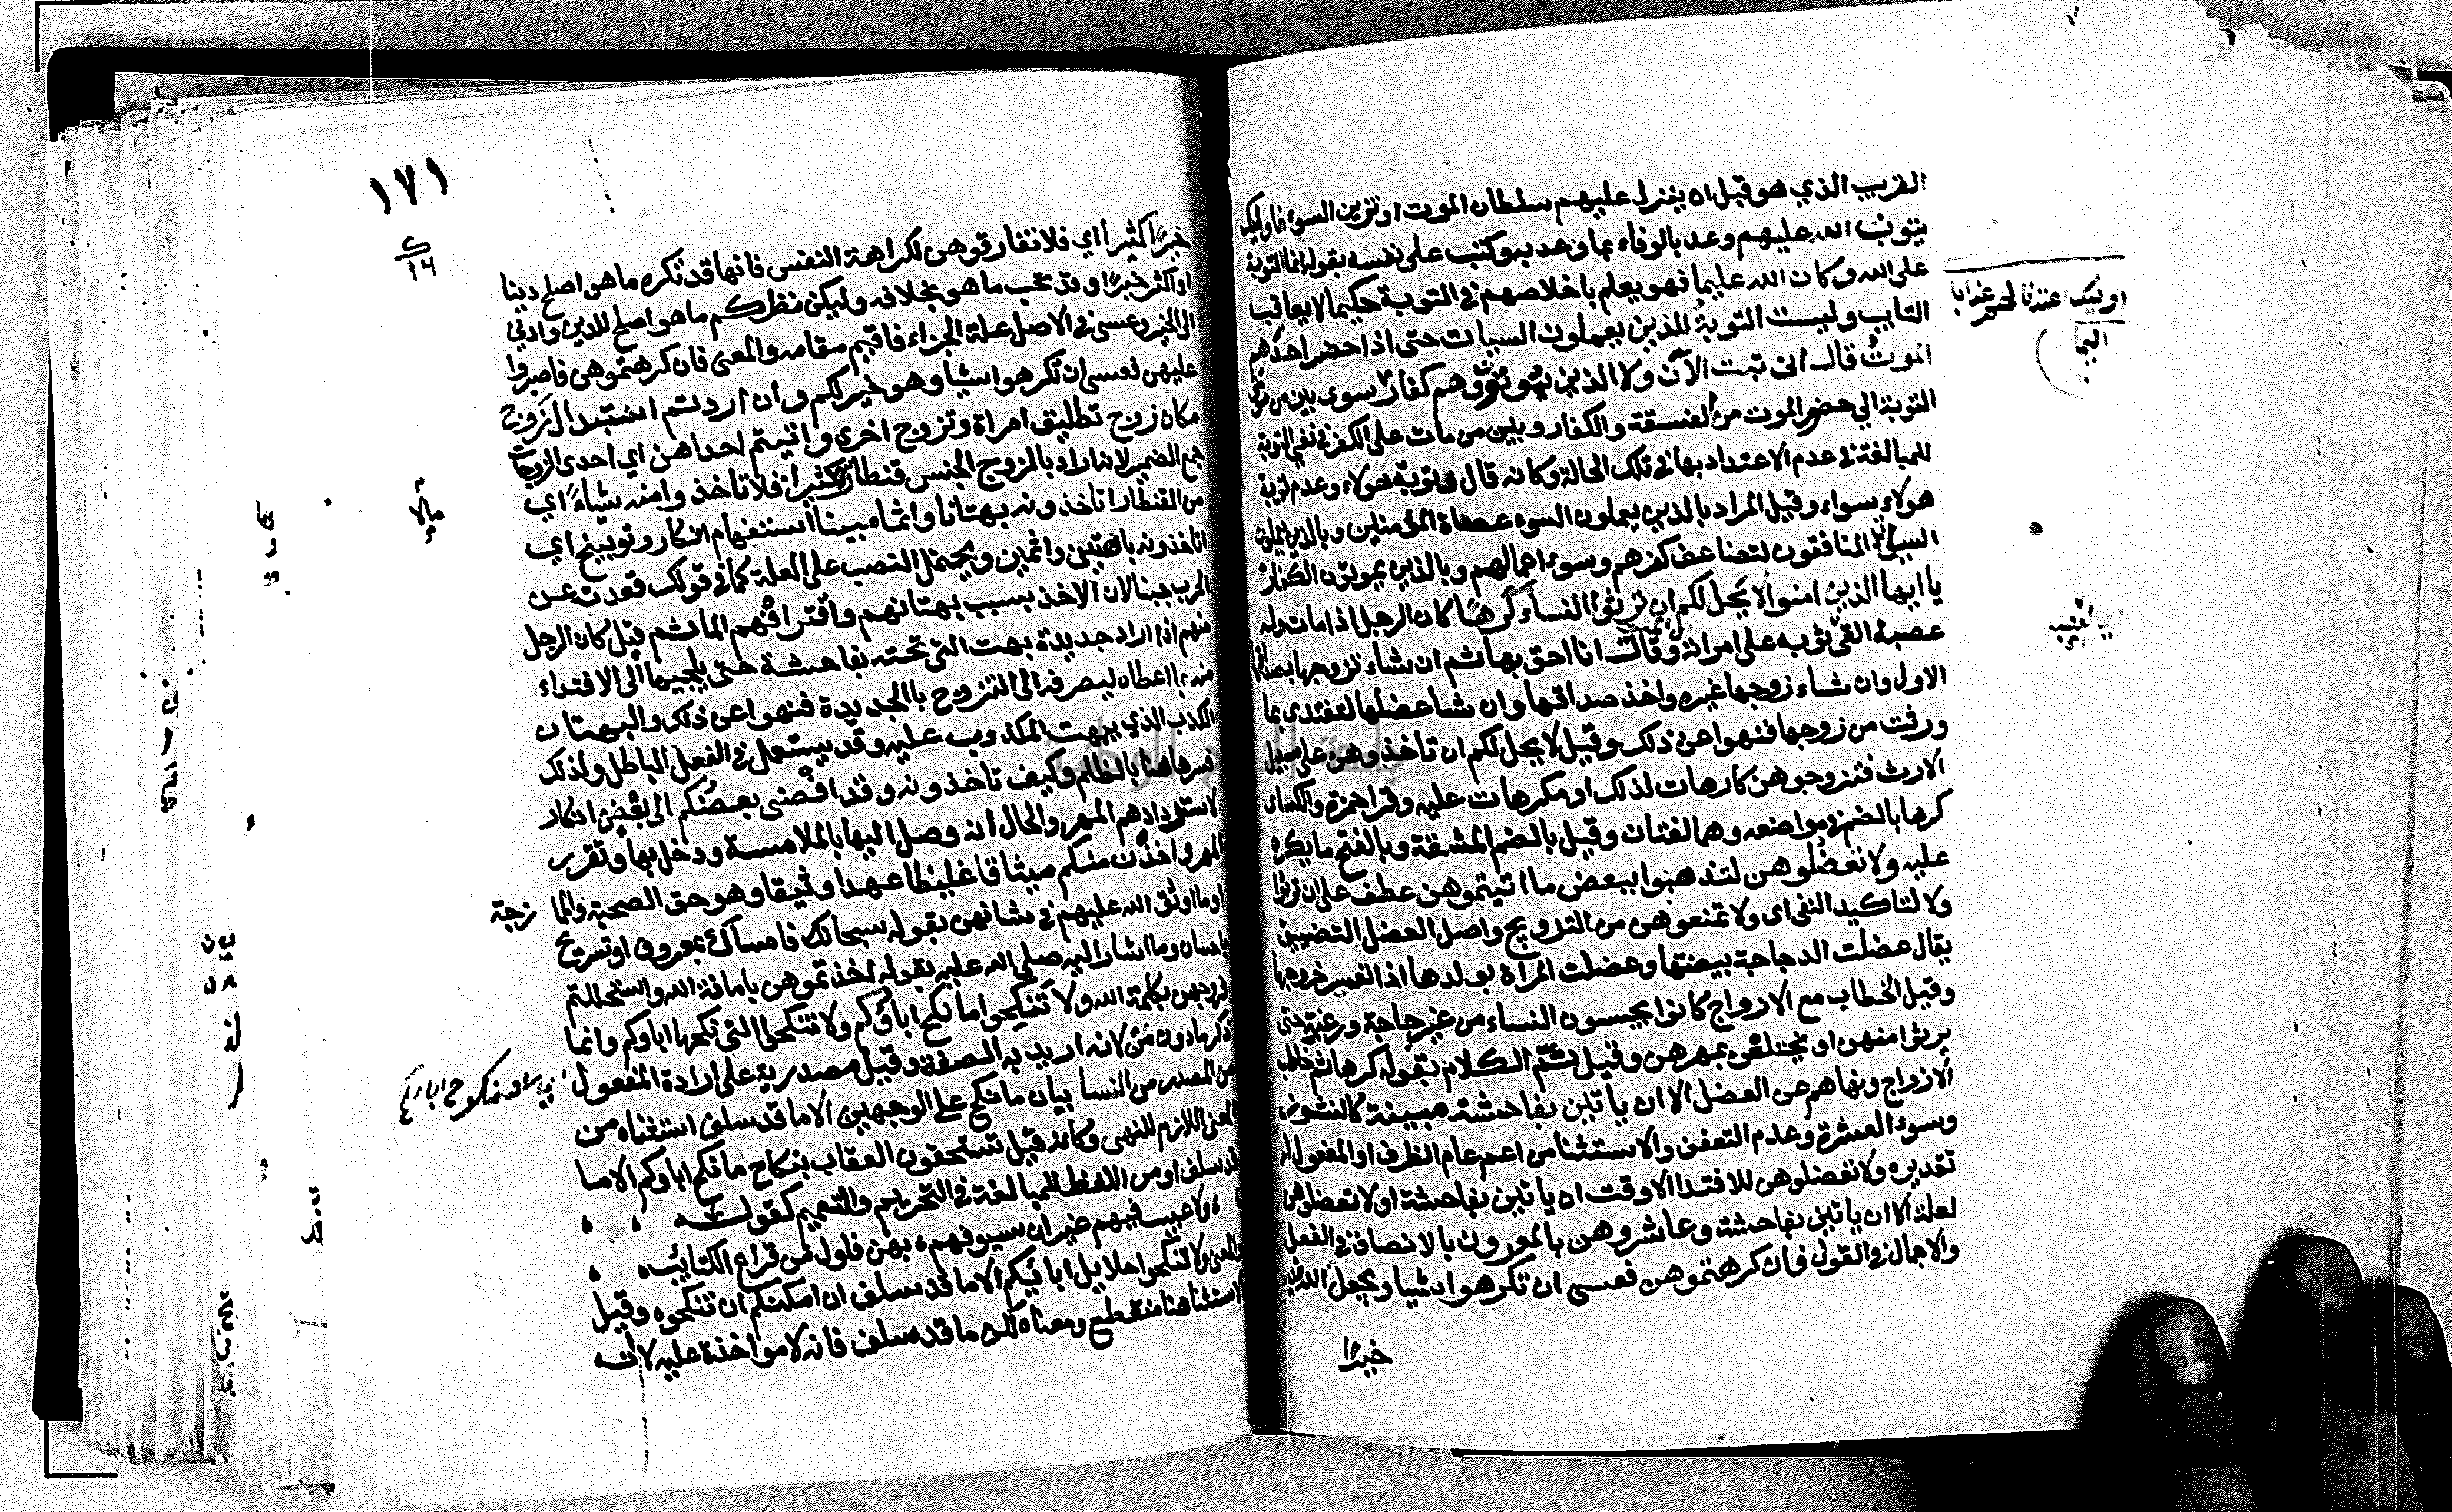 القريب الذي هو قبل ان ينزل عليهم سلطان الموت او تزين السوء فاوليك
يتوب الله عليهم وعد بالوفاء بما وعد به وكتب على نفسه بقوله انما التوبة
على الله وكان الله عليما فهو يعلم باخلاصهم في التوبة حكيما لا يعاقب
التايب وليست التوبة للذين يعملون السيات حتى اذا حضر احدهم
الموت قال اني تبت الآن ولا الذين يموتون وهم كفار سوى بين من
التوبة الي حضور الموت من الفسقة والكفار وبين من مات على الكفر في نفي التوبة
للمبالغة في عدم الاعتداد بها في تلك الحالة وكانه قال وتوبة هولاء وعدم توبة
هولاء سواء وقيل المراد بالذين يعملون السوء عصاة المؤمنين وبالذين يعملون
السيات المنافقون لتضاعف كفرهم وسوء اعمالهم وبالذين يموتون الكفار
يا ايها الذين امنوا لا يحل لكم ان ترثوا النساء كرها كان الرجل اذا مات وله
عصبة القى ثوبه على امراته وقال انا احق بها ثم ان شاء تزوجها بصداقها
الاول وان شاء زوجها غيره واخذ صداقها وان شا عضلها لتفتدي بما
ورثت من زوجها فنهوا عن ذلك وقيل لا يحل لكم ان تاخذوهن على سبيل
الارث فتزوجوهن كارهات لذلك او مكرهات عليه وقرا حمزة والكساء
كرها بالضم في مواضعه وهما لغتان وقيل بالضم المشقة وبالفتح ما يكره
عليه ولا تعضلوهن لتذهبوا ببعض ما اتيتموهن عطف على ان ترثوا
ولا لتاكيد النفي اى ولا تمنعوهن من التزويج واصل العضل التضييق
يقال عضلت الدجاجة ببيضتها وعضلت المراة بولدها اذا تعسر خروجها
وقيل الخطاب مع الازواج كانوا يحبسون النساء من غير حاجة ورغبة حتى
يرثوا منهن او يختلعن بمهرهن وقيل تم الكلام بقوله كرها ثم خاطب
الازواج ونهاهم عن العضل الا ان ياتين بفاحشة مبينة كالنشوز
وسوء العشرة وعدم التعفف والاستثنا من اعم عام الظرف او المفعول له
تقديره ولا تعضلوهن للافتدا الا وقت ان ياتين بفاحشة او لا تعضلوهن
لعلة الا ان ياتين بفاحشة وعاشروهن بالمعروف بالانصاف في الفعل
والاجمال في القول فان كرهتموهن فعسى ان تكرهوا شيا ويجعل الله فيه
خيرا
اوليك اعتدنا لهم عذابا
اليما
١٧١
خيرا كثيرا اي فلا تفارقوهن لكراهة النفس فانها قد تكره ما هو اصلح دينا
او اكثر خيرا وقد تحب ما هو بخلافه وليكن نظركم ما هو اصلح للدين وادنى
الى الخير وعسى في الاصل علة الجزاء فاقيم مقامه والمعنى فان كرهتموهن فاصبروا
عليهن فعسى ان تكرهوا شيا وهو خير لكم وان اردتم استبدال زوج
مكان زوج تطليق امراة وتزوج اخرى واتيتم احداهن اي احدى الزوجات
جمع الضمير لانه اراد بالزوج الجنس قنطارا كثيرا فلا تاخذوا منه شياء اي
من القنطار اتاخذونه بهتانا واثما مبينا استفهام انكار وتوبيخ اي
اتاخذونه باهتين واثمين ويحتمل النصب على العلة كما في قولك قعدت عن
الحرب جبنا لان الاخذ بسبب بهتانهم واقترافهم الماثم قيل كان الرجل
منهم اذا اراد جديدة بهت التي تحته بفاحشة حتى يلجيها الى الافتداء
منه بما اعطاه ليصرفه الى التزوج بالجديدة فنهوا عن ذلك والبهتان
الكذب الذي يبهت المكذوب عليه وقد يستعمل في الفعل الباطل ولذلك
فسر ها هنا بالظلم وكيف تاخذونه وقد افضى بعضكم الى بعض انكار
لاسترداد هم المهر والحال انه وصل اليها بالملامسة ودخل بها وتقرر
المهر واخذن منكم ميثاقا غليظا عهدا وثيقا وهو حق الصحبة والمما زجة
او ما اوثق الله عليهم في شانهن بقوله سبحانك فامساك بمعروف او تسريح
باحسان وما اشار اليه صلى الله عليه بقوله اخذتموهن بامانة الله واستحللتم
فروجهن بكلمة الله ولا تنكحوا ما نكح اباؤكم ولا تنكحوا التي نكحها اباوكم وانما
ذكر ما دون من لانه اريد به الصفة وقيل مصدرية على ارادة المفعول
من المصدر من النسا بيان ما نكح على الوجهين الا ما قد سلف استثناه من
المعنى اللازم للنهي وكانه قيل تستحقون العقاب بنكاح ما نكح اباوكم الا ما
قد سلف او من اللفظ للمبالغة في التحريم والتعميم كقوله
ولا عيب فيهم غير ان سيوفهم بهن فلول من قراع الكتائب
والمعنى ولا تنكحوا حلايل ابائيكم الا ما قد سلف ان امكنكم ان تنكحوه وقيل
استثنا هنا منقطع ومعناه لكن ما قد سلف فانه لا مواخذة عليه لانه